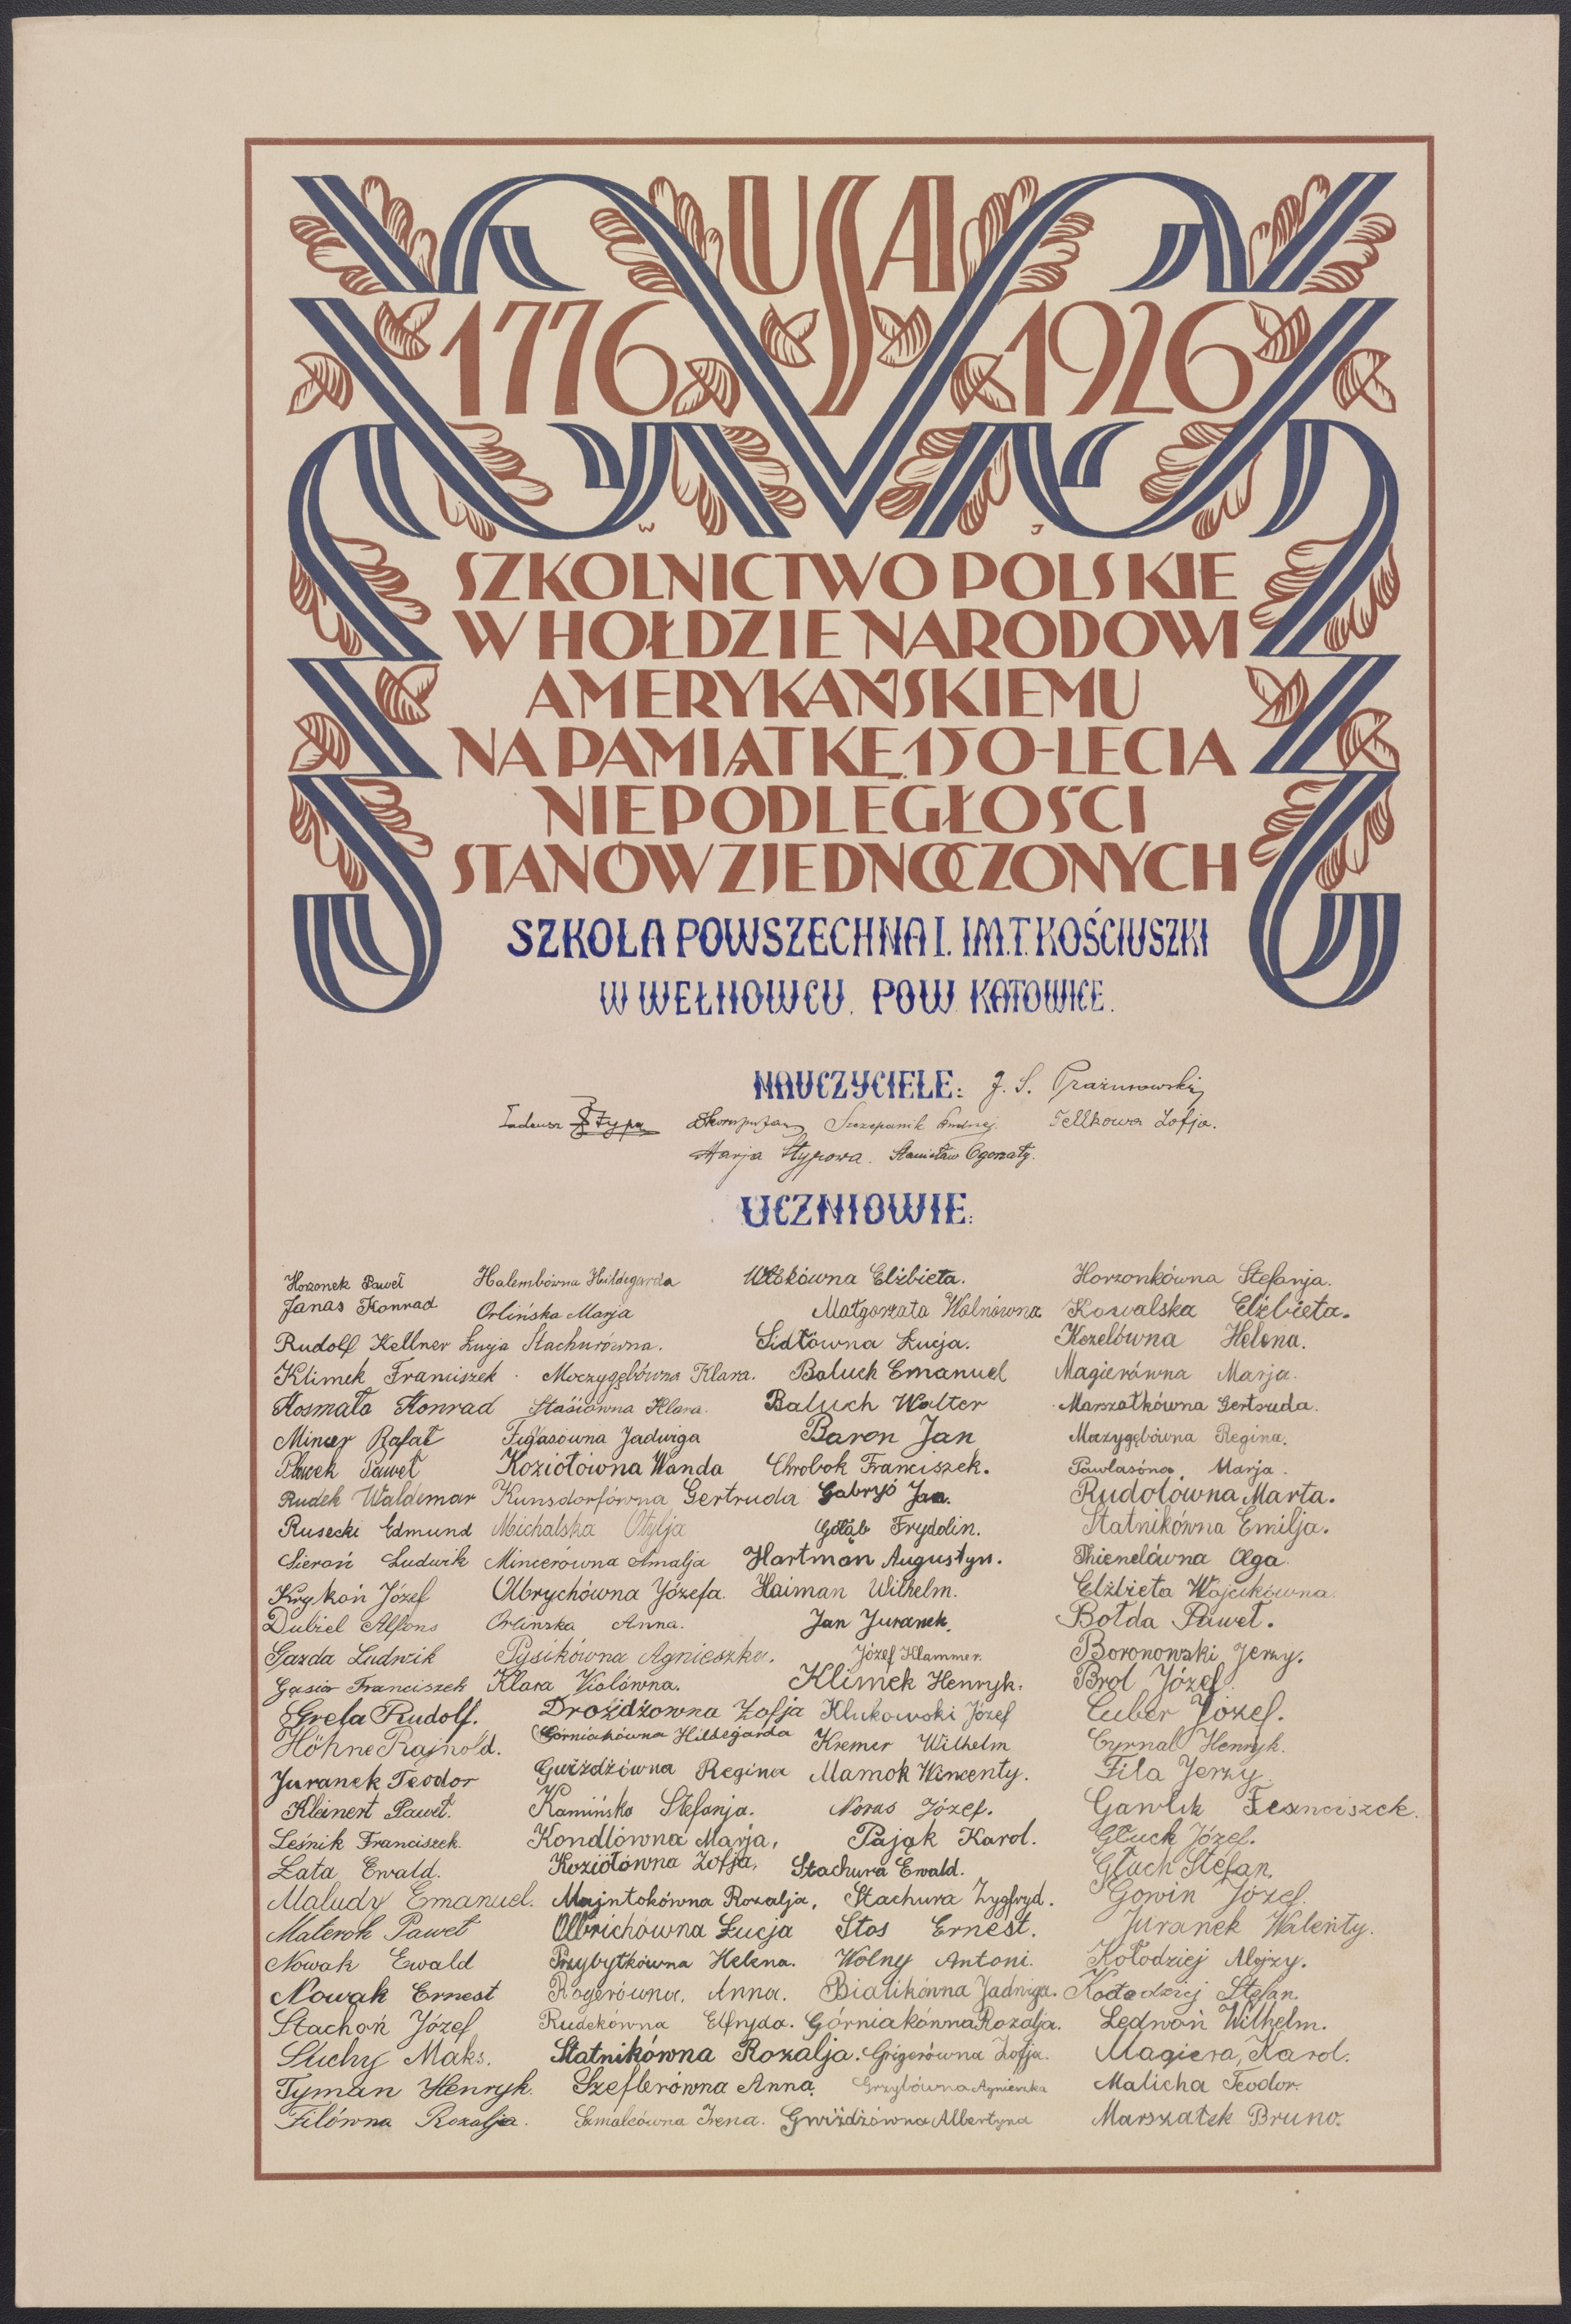 USA
1776 1926
W J
SZKOLNICTWO POLSKIE
W HOŁDZIE NARODOWI
AMERYKAŃSKIEMU
NA PAMIĄTKĘ 150-LECIA
NIEPODLEGŁOŚCI
STANÓW ZJEDNOCZONYCH
SZKOŁA POWSZECHNA I. IM. T. KOŚCIUSZKI
W WEŁNOWCU. POW. KATOWICE.
NAUCZYCIELE: J. S.
Tadeusz Stypa Szczepanik Andrzej. Tellkowa Zofja.
Marja Stypowa. Stanisław Ogorzały.
UCZNIOWIE:
Horzonek Paweł Halembówna Hildegarda Elżbieta. Horzonkówna Stefanja.
Janas Konrad Orlińska Marja Małgorzata Wolnówna Kowalska Elżbieta.
Rudolf Kellner Łucja Stachurówna. Sidłówna Łucja. Kozelówna Helena.
Klimek Franciszek Moczygębówna Klara. Baluch Emanuel Magierówna Marja.
Kosmała Konrad Stasiówna Klara. Baluch Walter Marszałkówna Gertruda.
Mincer Rafał Figasówna Jadwiga Baron Jan Mazygębówna Regina.
Pławek Paweł Koziołówna Wanda Chrobok Franciszek. Pawlasóna, Marja.
Rudek Waldemar Kunsdorfówna Gertruda Gabryś Jan. Rudolówna Marta.
Rusecki Edmund Michalska Otylja Gołąb Frydolin. Statnikówna Emilja.
Sieroń Ludwik Mincerówna Amalja Hartman Augustyn. Thienelówna Olga.
Krykoń Józef Olbrychówna Józefa. Haiman Wilhelm. Elżbieta Wójcikówna.
Dubiel Alfons Orlinska Anna. Jan Juranek. Bołda Paweł.
Gazda Ludwik Pysikówna Agnieszka. Józef Klammer. Boronowski Jerzy.
Gąsior Franciszek Klara Violówna. Klimek Henryk. Brol Józef.
Grela Rudolf. Drożdżowna Zofja Klukowski Józef Cuber Józef.
Höhne Rajnold. Górniakówna Hildegarda Kremer Wilhelm Cyrnal Henryk.
Juranek Teodor Gwiżdżówna Regina Mamok Wincenty. Fila Jerzy.
Kleinert Paweł. Kamińska Stefanja. Noras Józef. Gawlik Franciszek.
Leśnik Franciszek. Kondlówna Marja, Pająk Karol. Głuck Józef.
Lata Ewald. Koziołówna Zofja, Stachura Ewald. Głuch Stefan.
Maludy Emanuel. Majntokówna Rozalja, Stachura Zygfryd. Gowin Józef.
Materok Paweł Olbrichówna Łucja Stos Ernest. Juranek Walenty.
Nowak Ewald Przybytkówna Helena. Wolny Antoni. Kołodziej Alojzy.
Nowak Ernest Rogerówna. Anna. Bialikówna Jadwiga. Kołodziej Stefan.
Stachoń Józef Rudekówna Elfryda. Górniakówna Rozalja. Ledwoń Wilhelm.
Suchy Maks. Statnikówna Rozalja. Grigerówna Zofja. Magiera, Karol.
Tyman Henryk. Szeflerówna Anna. Grzybówna Agnieszka Malicha Teodor.
Filówna Rozalja. Szmalcówna Irena. Gwiżdżówna Albertyna Marszałek Bruno.